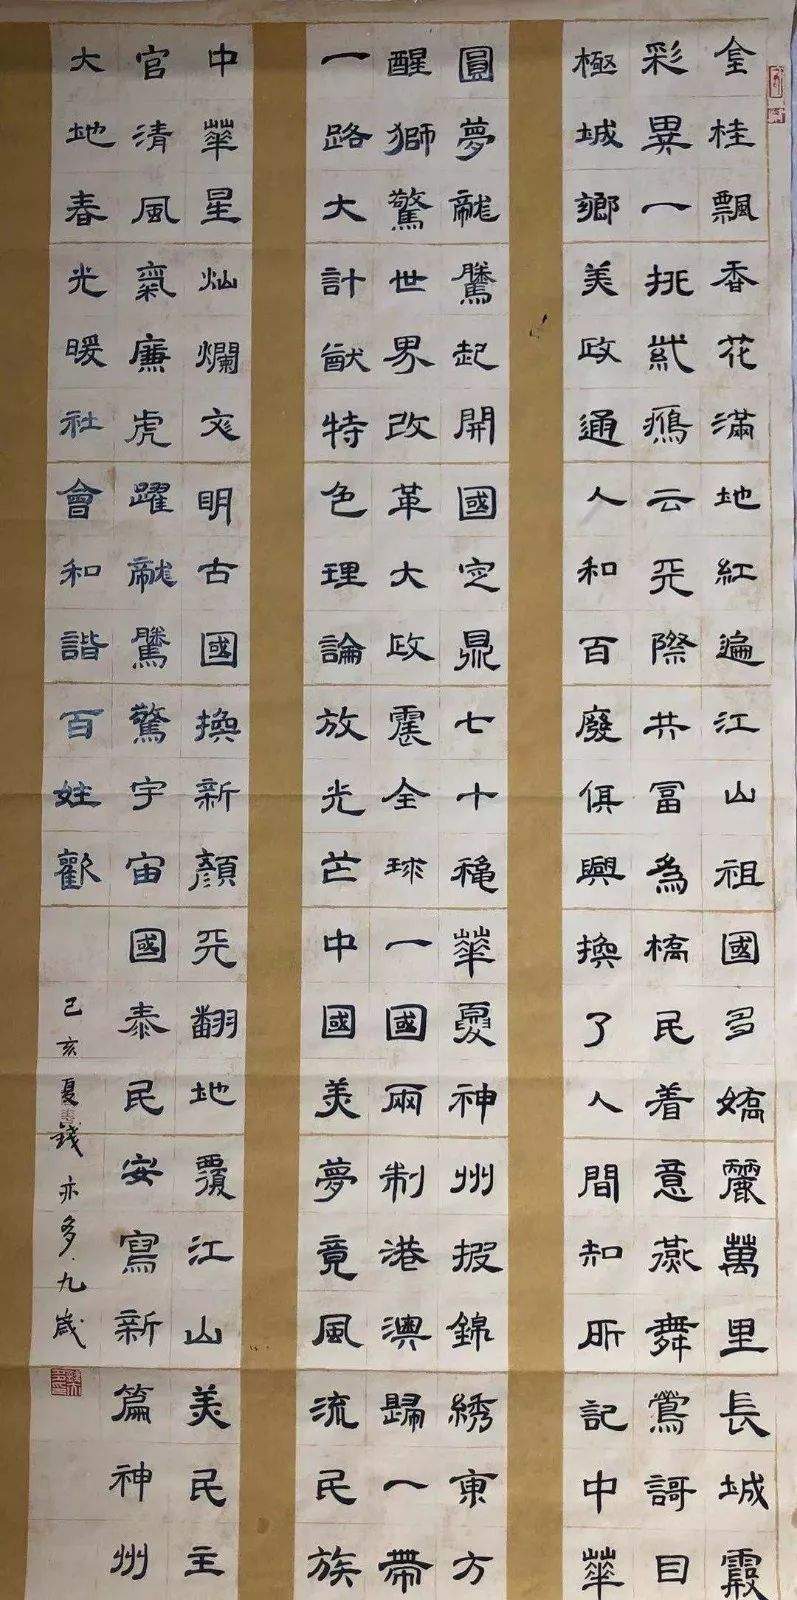 金桂飄香花滿地紅遍江山祖國多嬌麗萬里長城霞
彩異一挑貳鴉云天際共富為橋民着意燕舞鶯歌目
極城鄉美政通人和百廢俱興換了人間知所記中華
圓夢龍騰起開國定鼎七十穐華夏神州披錦綉東方
醒獅驚世界改革大政震全球一國兩制港澳歸一帶
一路大計猷特色理論放光芒中國美夢竟風流民族
中華星燦爛文明古國換新顏天翻地覆江山美民主
官清風氣廉虎躍龍騰驚宇宙國泰民安寫新篇神州
大地春光暖社會和諧百姓歡
己亥夏錢亦多九歲